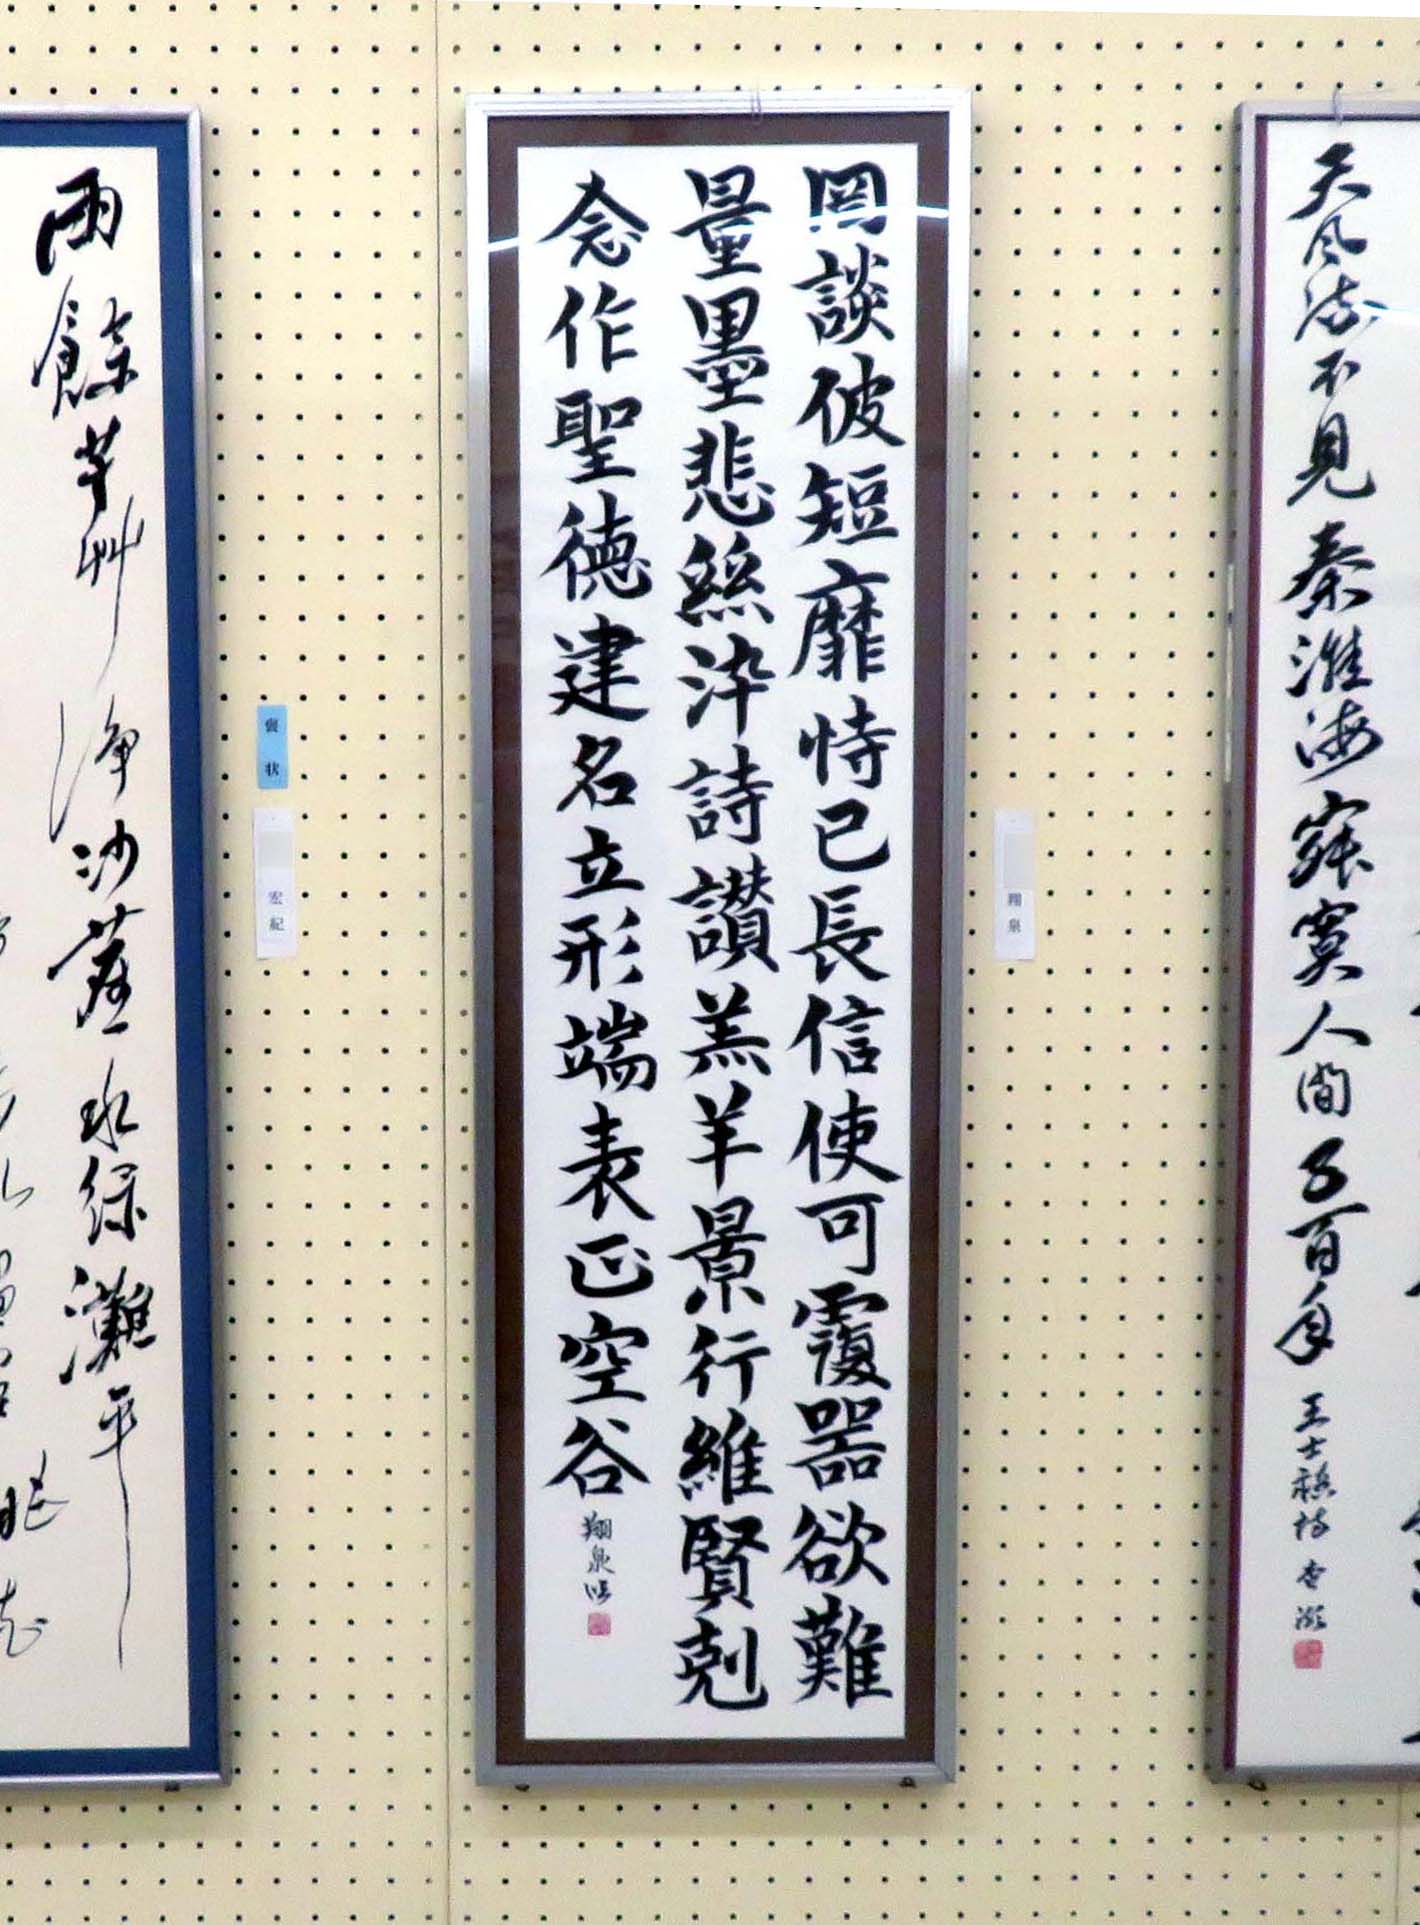 天風漪不見秦淮海寂寞人間五百年
王士禛詩
罔談彼短靡恃己長信使可覆器欲難
量墨悲絲染詩讃羔羊景行維賢剋
念作聖徳建名立形端表正空谷
翔泉臨
翔泉
褒状
宏紀
雨餘芳艸淨沙塵水緑灘平